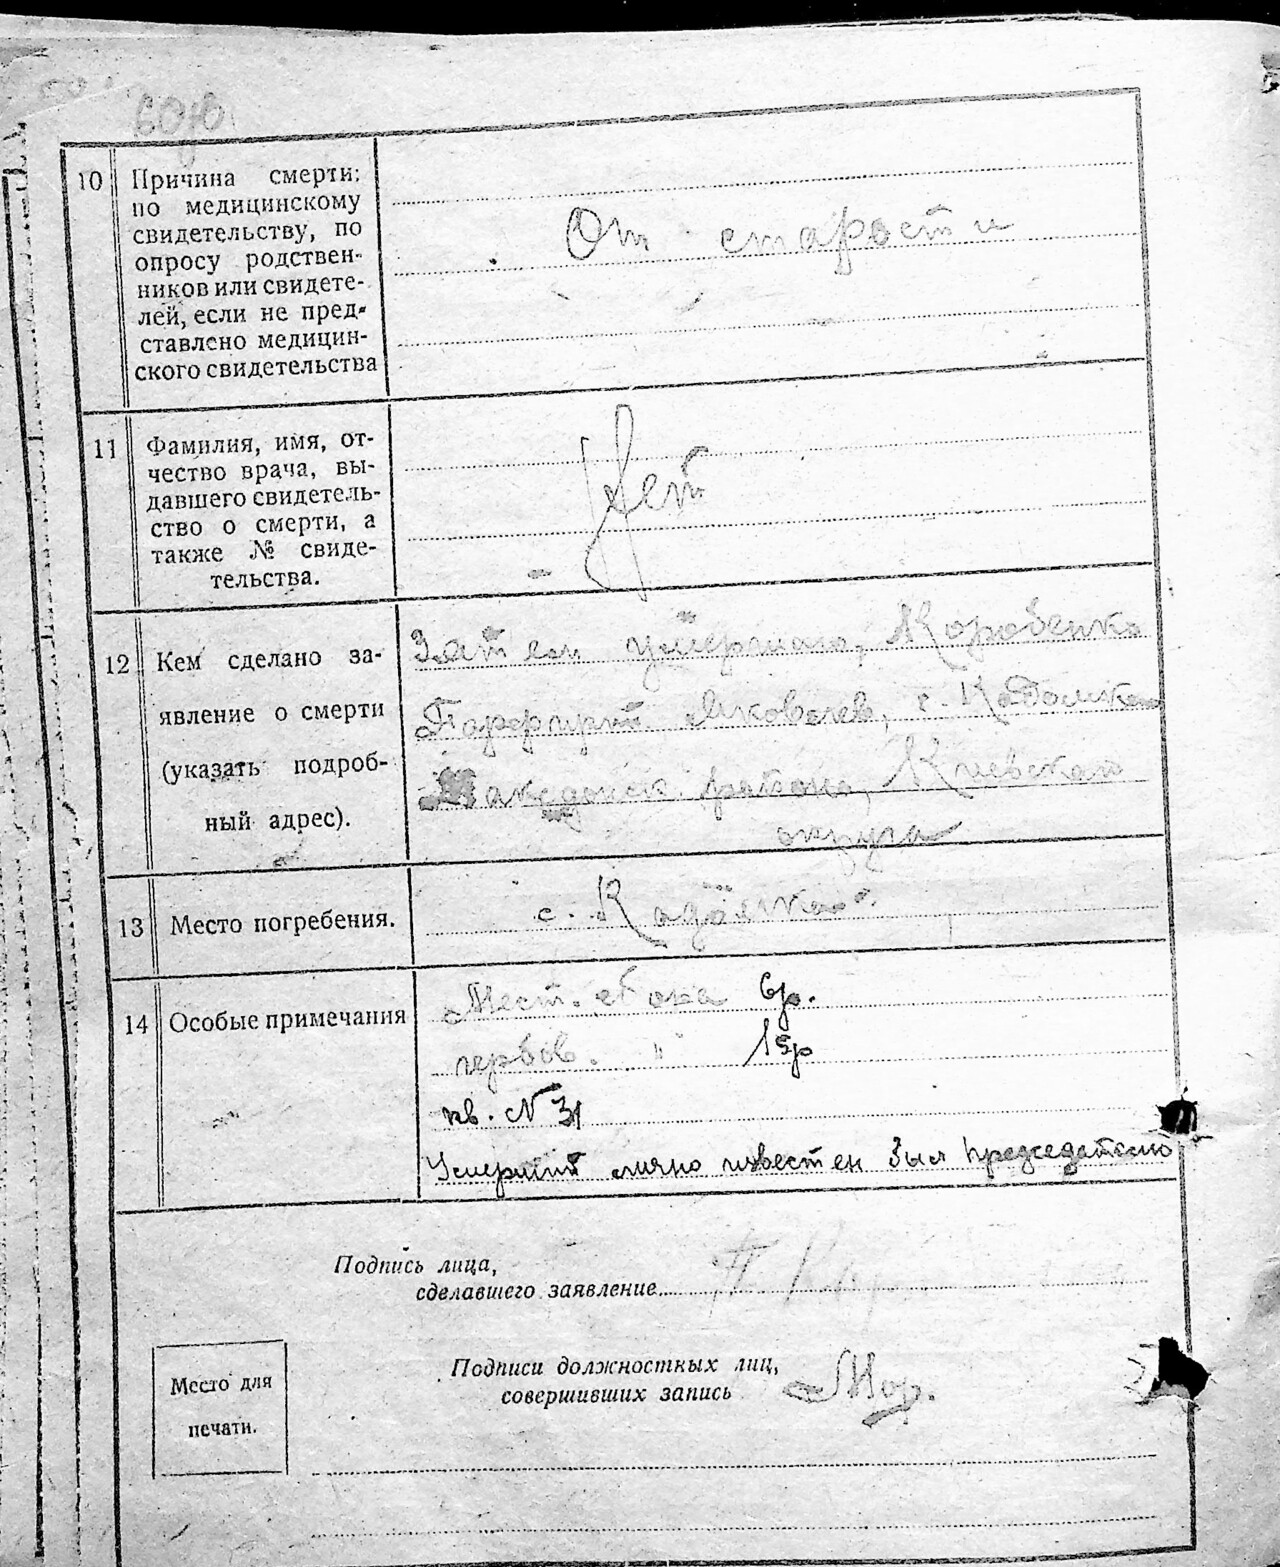 10
Причина смерти:
по медицинскому
свидетельству, по
опросу родствен-
ников или свидете-
лей, если не пред-
ставлено медицин-
ского свидетельства
От старости
11
Фамилия, имя, от-
чество врача, вы-
давшего свидетель-
ство о смерти, а
также № свиде-
тельства.
Нет
12
Кем сделано за-
явление о смерти
(указать подроб-
ный адрес).
Зятем умершаго,
Порфирий Яковлев, с.
района, Киевской
округа
13
Место погребения.
с.
14
Особые примечания
Мест. сбора 6р.
" 15р
кв. N 31
Умерший лично известен был председателю
Подпись лица,
сделавшего заявление
П
Место для
печати.
Подписи должностных лиц,
совершивших запись
Мор.